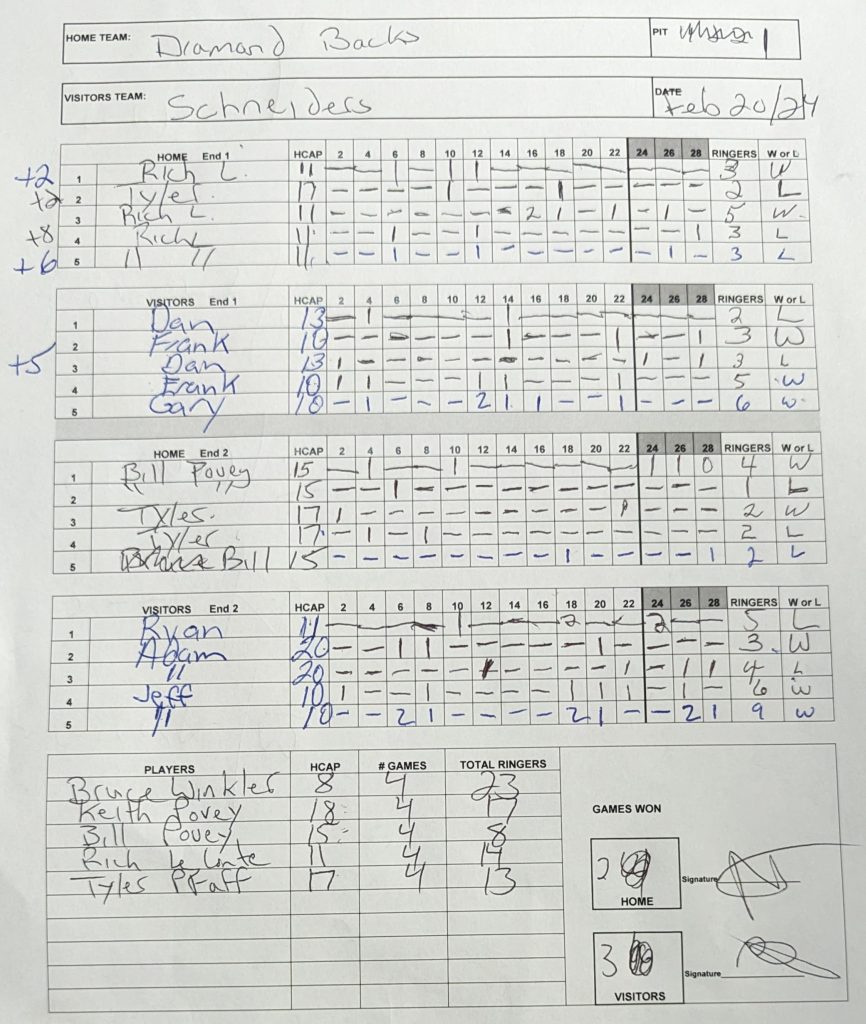 HOME TEAM: Diamond Backs PIT 1
VISITORS TEAM: Schneiders DATE Feb 20/24
HOME End 1 HCAP 2 4 6 8 10 12 14 16 18 20 22 24 26 28 RINGERS W or L
+2 1 Rich L. 11 — — 1 — 1 1 — — — — — — — — 3 W
+2 2 Tyler 17 — — — — 1 — — — 1 — — — — — 2 L
3 Rich L. 11 — — — — — — — 2 1 — 1 — 1 — 5 W
+8 4 Rich L 11 — — 1 — — 1 — — — — — — — 1 3 L
+6 5 " " 11 — — 1 — — 1 — — — — — — 1 — 3 L
VISITORS End 1 HCAP 2 4 6 8 10 12 14 16 18 20 22 24 26 28 RINGERS W or L
1 Dan 13 — 1 — — — — 1 — — — — — — — 2 L
2 Frank 10 — — — — — — 1 — — — 1 — — 1 3 W
+5 3 Dan 13 1 — — — — — — — — — — 1 — 1 3 L
4 Frank 10 1 1 — — — 1 1 — — — 1 — — — 5 W
5 Gary 10 — 1 — — — 2 1 1 — — 1 — — — 6 W
HOME End 2 HCAP 2 4 6 8 10 12 14 16 18 20 22 24 26 28 RINGERS W or L
1 Bill Povey 15 — 1 — — 1 — — — — — — 1 1 0 4 W
2 " " 15 — — 1 — — — — — — — — — — — 1 L
3 Tyler. 17 1 — — — — — — — — — 1 — — — 2 W
4 Tyler 17 — 1 — 1 — — — — — — — — — — 2 L
5 Bill 15 — — — — — — — — 1 — — — — 1 2 L
VISITORS End 2 HCAP 2 4 6 8 10 12 14 16 18 20 22 24 26 28 RINGERS W or L
1 Ryan 11 — — — — 1 — — — 2 — — 2 — — 5 L
2 Adam 20 — — 1 1 — — — — — 1 — — — — 3 W
3 " 20 — — — — — 1 — — — — 1 — 1 1 4 L
4 Jeff 10 1 — — 1 — — — — 1 1 1 — 1 — 6 W
5 " 10 — — 2 1 — — — — 2 1 — — 2 1 9 W
PLAYERS HCAP # GAMES TOTAL RINGERS
Bruce Winkler 8 4 23
Keith Povey 18 4 17
Bill Povey 15 4 8
Rich Le Conte 11 4 14
Tyler Pfaff 17 4 13
GAMES WON
2
HOME
Signature
3
VISITORS
Signature